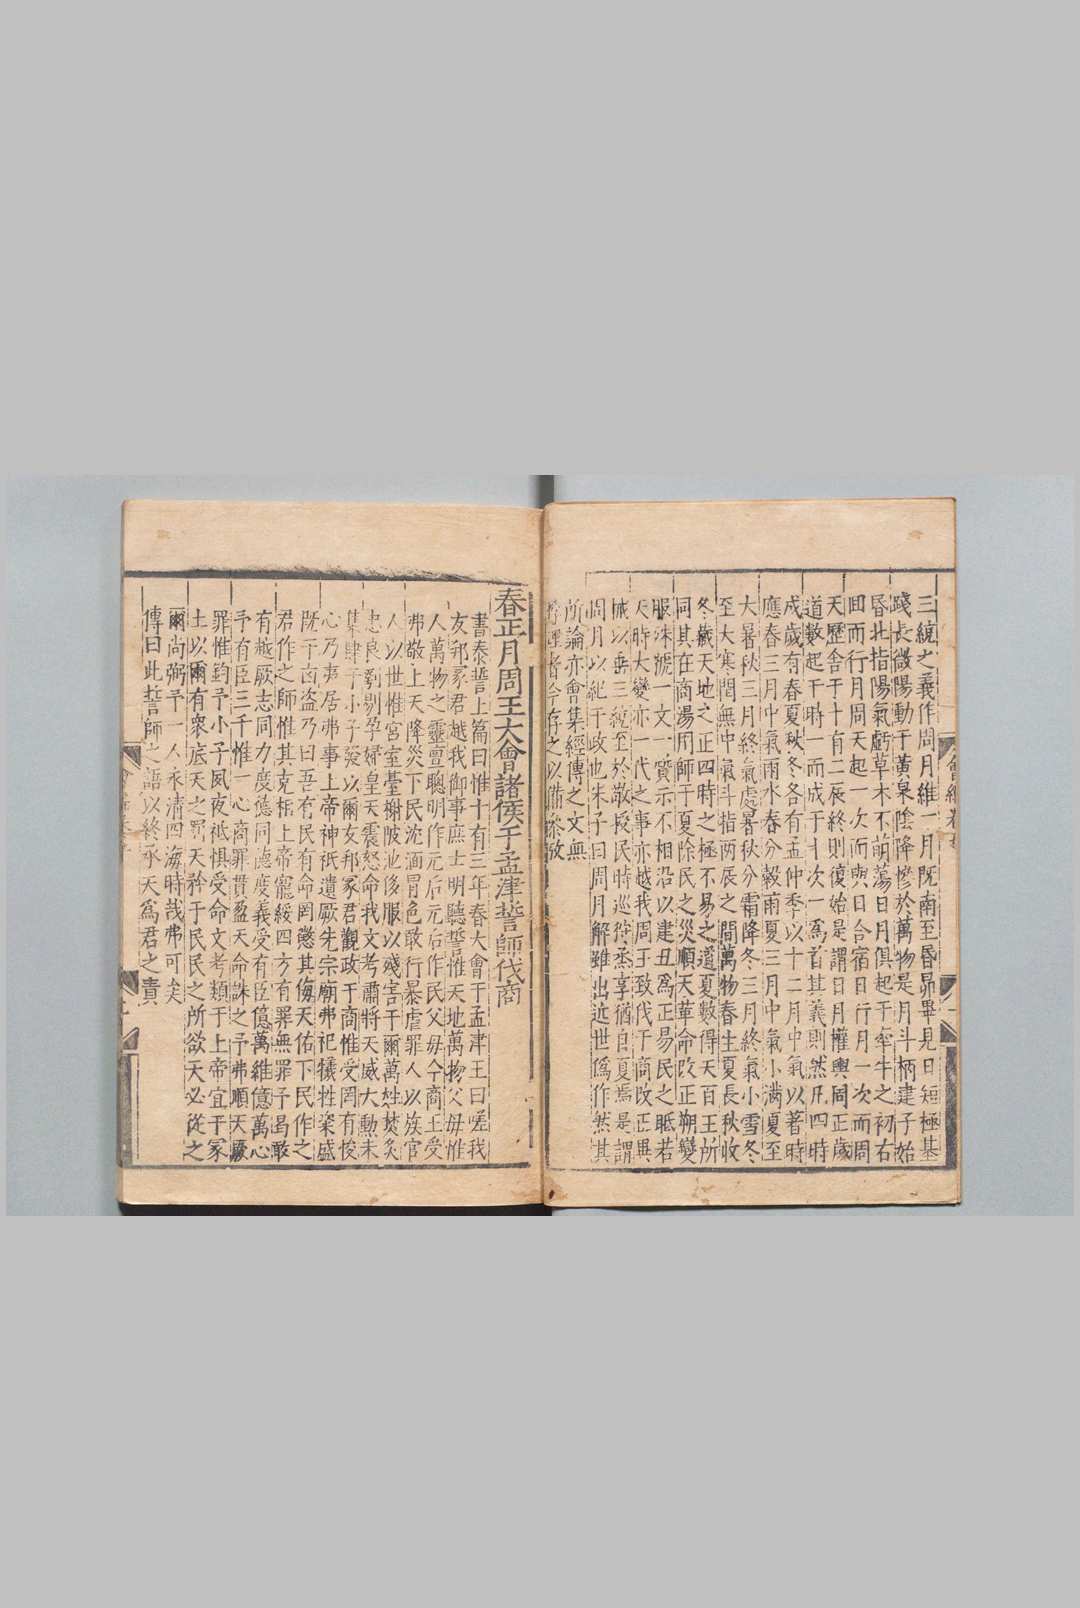 三統之義作周月維一月既南至昬昴畢見日短極基
踐長微陽動于黄泉陰降慘於萬物是月斗柄建子始
昬北指陽氣虧草木不萌蕩日月俱起于牽牛之初右
囬而行月周天起一次而與日合宿日行月一次而周
天歷舎于十有二辰終則復始是謂日月權輿周正歳
道數起于時一而成于十次一爲首其義則然凡四時
成歳有春夏秋冬各有孟仲季以十二月中氣以著時
應春三月中氣雨水春分糓雨夏三月中氣小满夏至
大暑秋三月終氣處暑秋分霜降冬三月終氣小雪冬
至大寒閏無中氣斗指两辰之間萬物春生夏長秋收
冬藏天地之正四時之極不易之道夏數得天百王所
同其在商湯用師于夏除民之災順天革命改正朔變
服殊號一文一質示不相沿以建丑爲正易民之眂若
天時大變亦一代之事亦越我周王致伐于商改正異
械以垂三統至於敬授民時巡狩烝享猶自夏焉是謂
周月以紀于政也朱子曰周月解雖出近世僞作然其
所論亦會集經傳之文無
悖理者今存之以備叅攷
春正月周王大會諸侯于孟津誓師伐商
書泰誓上篇曰惟十有三年春大會于孟津王曰嗟我
友邦冢君越我御事庶士明聽誓惟天地萬物父毋惟
人萬物之靈亶聰明作元后元后作民父毋今商王受
弗敬上天降災下民沈湎冒色敢行暴虐罪人以族官
人以世惟宮室臺榭陂池侈服以殘害于爾萬姓焚炙
忠良刳剔孕婦皇天震怒命我文考肅將天威大勲未
集肆予小子發以爾友邦冢君觀政于商惟受罔有悛
心乃夷居弗事上帝神祇遺厥先宗廟弗祀犧牲粢盛
既于凶盗乃曰吾有民有命罔懲其侮天佑下民作之
君作之師惟其克相上帝寵綏四方有罪無罪予曷敢
有越厥志同力度德同德度義受有臣億萬維億萬心
予有臣三千惟一心商罪貫盈天命誅之予弗順天厥
罪惟鈞予小子夙夜祇懼受命文考類于上帝宜于冢
土以爾有衆底天之罰天矜于民民之所欲天必從之
爾尚弼予一人永清四海時哉弗可失
傳曰此誓師之語以終承天爲君之責